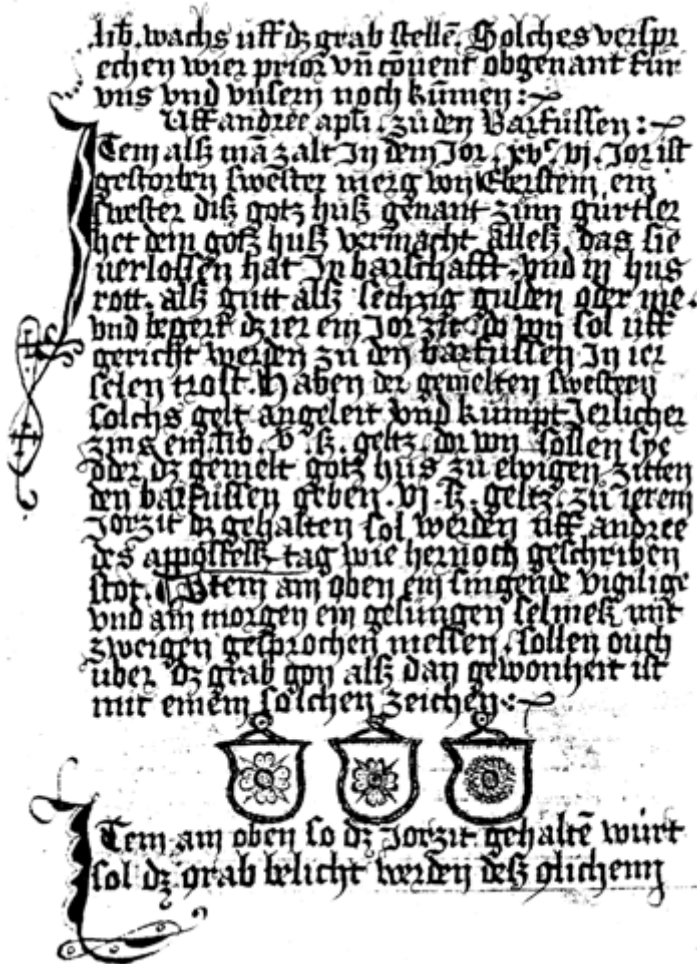 lib. wachs uff dz grab stellē. Solches verspr
echen wier prior vn̄ cōuent obgenant fur
vns vnd vnsern noch kūmen :~
Uff andree apłi. zu den Barfüssen :~
ITem alß mā zalt In dem Jor. xvᶜ. vj. Jor ist
gestorben swester merg von Eberstein ein
swester diß gotz huß genant zum gürtler
het dem gotz huß vermacht alleß das sie
verlossen hat In barschafft. vnd in hus
rott. alß gutt alß sechzig gulden oder me.
vnd begert dz ier ein Jor zit do mit sol uff
gericht werden zu den barfussen In ier
selen trost. Haben der gemelten swestern
solchs gelt angeleit vnd kumpt Jerlicher
zins ein. lib. v. ß. geltz. dor von sollen sye
oder dz gemelt gotz hus zu ewigen zitten
den barfussen geben. vj. ß. geltz. zu ierem
Jorzit dz gehalten sol werden uff andree
des appostelß tag wie hernoch geschriben
stot. Item am oben ein singende vigilige
vnd am morgen ein gesungen selmeß mit
zweigen gesprochen messen. sollen ouch
über dz grab gon alß dan gewonheit ist
mit einem solchen zeichen :~
ITem am oben so dz Jorzit gehaltē würt
sol dz grab belicht werden deß glichenn